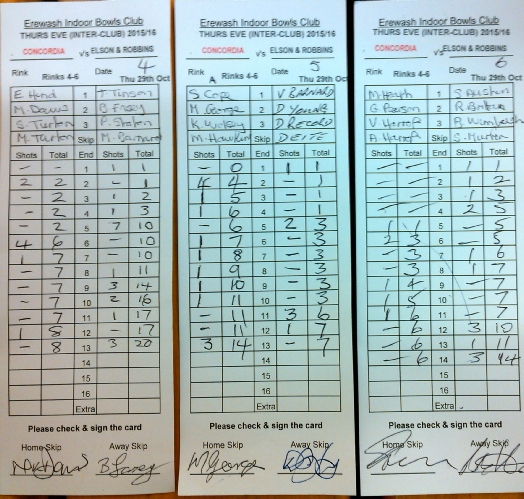 Erewash Indoor Bowls Club
THURS EVE (INTER-CLUB) 2015/16
CONCORDIA v's ELSON & ROBBINS
4
Rink Rinks 4-6 Date Thu 29th Oct
E Hand 1 T Tinson
M. Davis 2 B
S. Turton 3 P.
M. Turton Skip M. Barnard
Shots Total End Shots Total
- - 1 1 1
2 2 2 - 1
- 2 3 1 2
- 2 4 1 3
- 2 5 7 10
4 6 6 - 10
1 7 7 - 10
- 7 8 1 11
- 7 9 3 14
- 7 10 2 16
- 7 11 1 17
1 8 12 - 17
- 8 13 3 20
14
15
16
Extra
Please check & sign the card
Home Skip Away Skip
Erewash Indoor Bowls Club
THURS EVE (INTER-CLUB) 2015/16
CONCORDIA v's ELSON & ROBBINS
5
Rink A Rinks 4-6 Date Thu 29th Oct
S. Cope 1 V BARNARD
M. George 2 D YOUNG
K. 3 D RECORD
M. Hawkins Skip DEITE
Shots Total End Shots Total
- 0 1 1 1
4 4 2 - 1
1 5 3 - 1
1 6 4 - 1
- 6 5 2 3
1 7 6 - 3
1 8 7 - 3
1 9 8 - 3
1 10 9 - 3
1 11 10 - 3
- 11 11 3 6
- 11 12 1 7
3 14 13 - 7
14
15
16
Extra
Please check & sign the card
Home Skip Away Skip
Erewash Indoor Bowls Club
THURS EVE (INTER-CLUB) 2015/16
CONCORDIA v's ELSON & ROBBINS
6
Rink Rinks 4-6 Date Thu 29th Oct
M Heath 1 S Austen
G 2 R
V 3 A
A Skip S. Murten
Shots Total End Shots Total
- - 1 1 1
- - 2 1 2
- - 3 1 3
- - 4 2 5
1 1 5 - 5
2 3 6 - 5
- 3 7 1 6
- 3 8 1 7
1 4 9 - 7
1 5 10 - 7
1 6 11 - 7
- 6 12 3 10
- 6 13 1 11
- 6 14 3 14
15
16
Extra
Please check & sign the card
Home Skip Away Skip